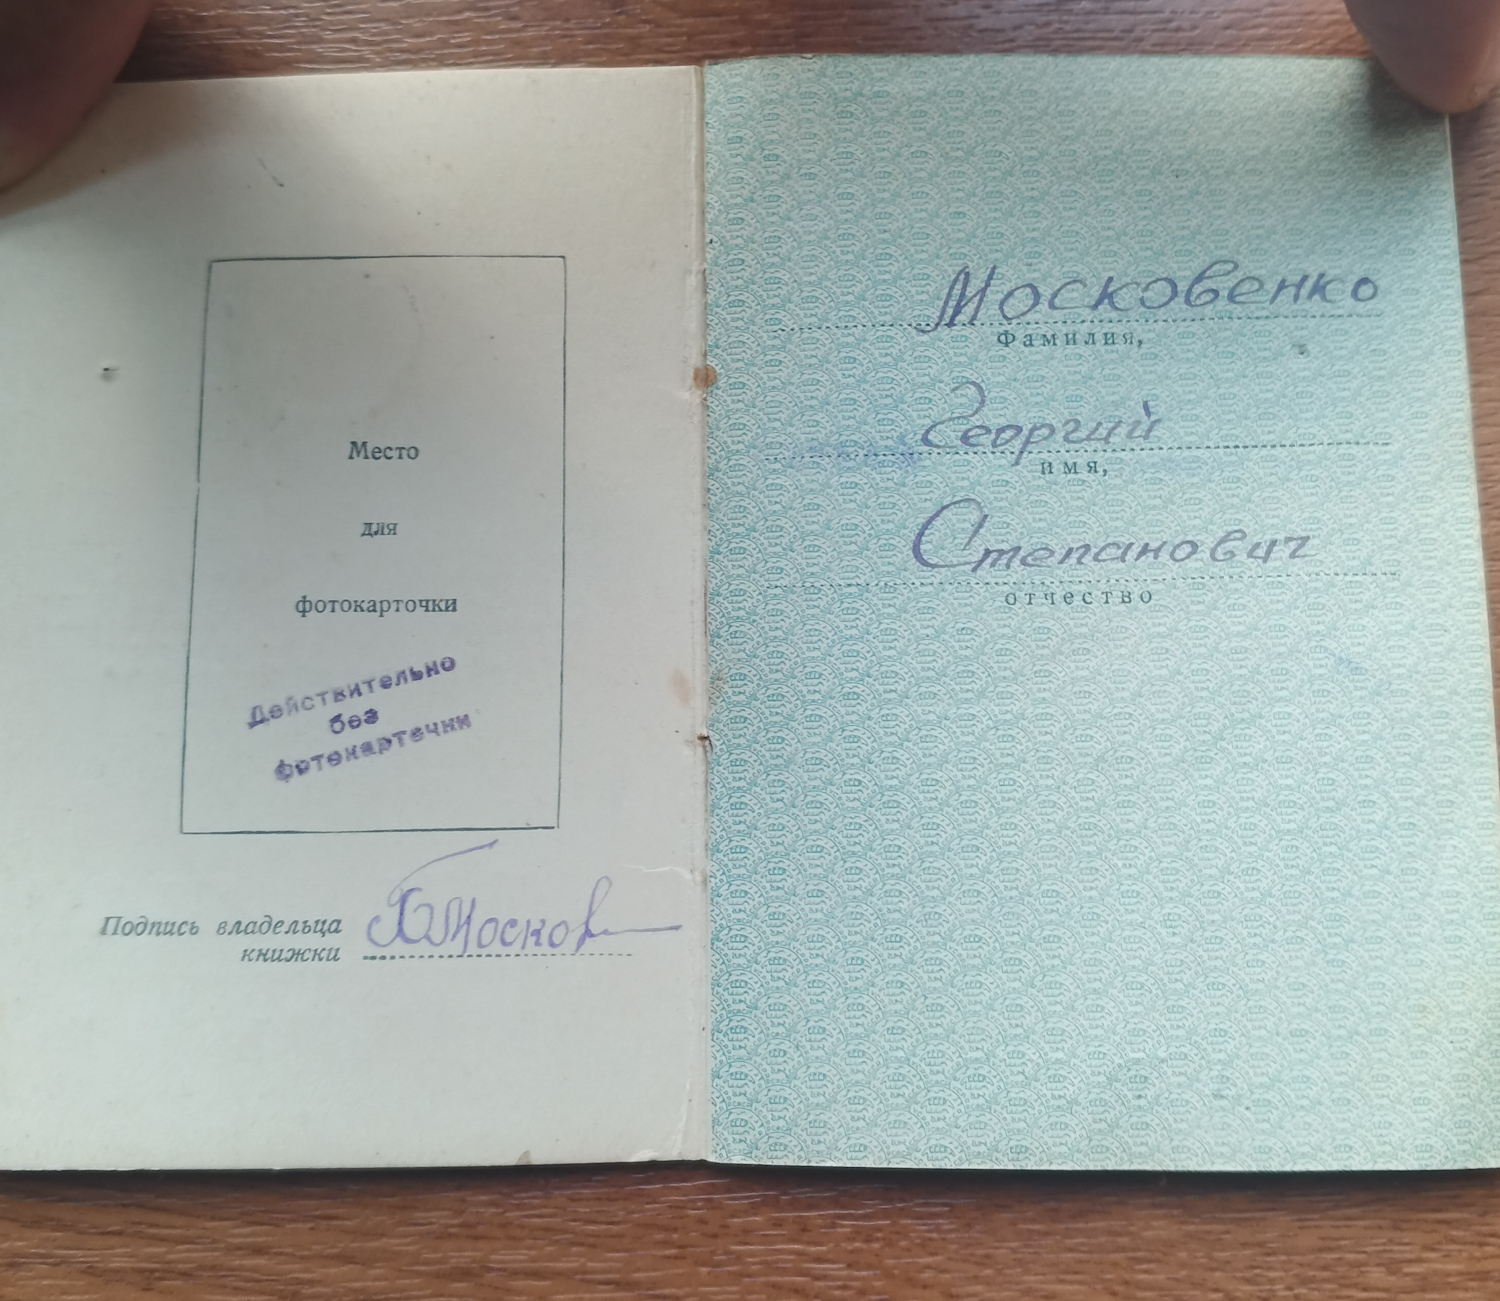 Место
для
фотокарточки
Действительно
без
фотокарточки
Подпись владельца
книжки
Московенко
Фамилия,
Георгий
имя,
Степанович
отчество